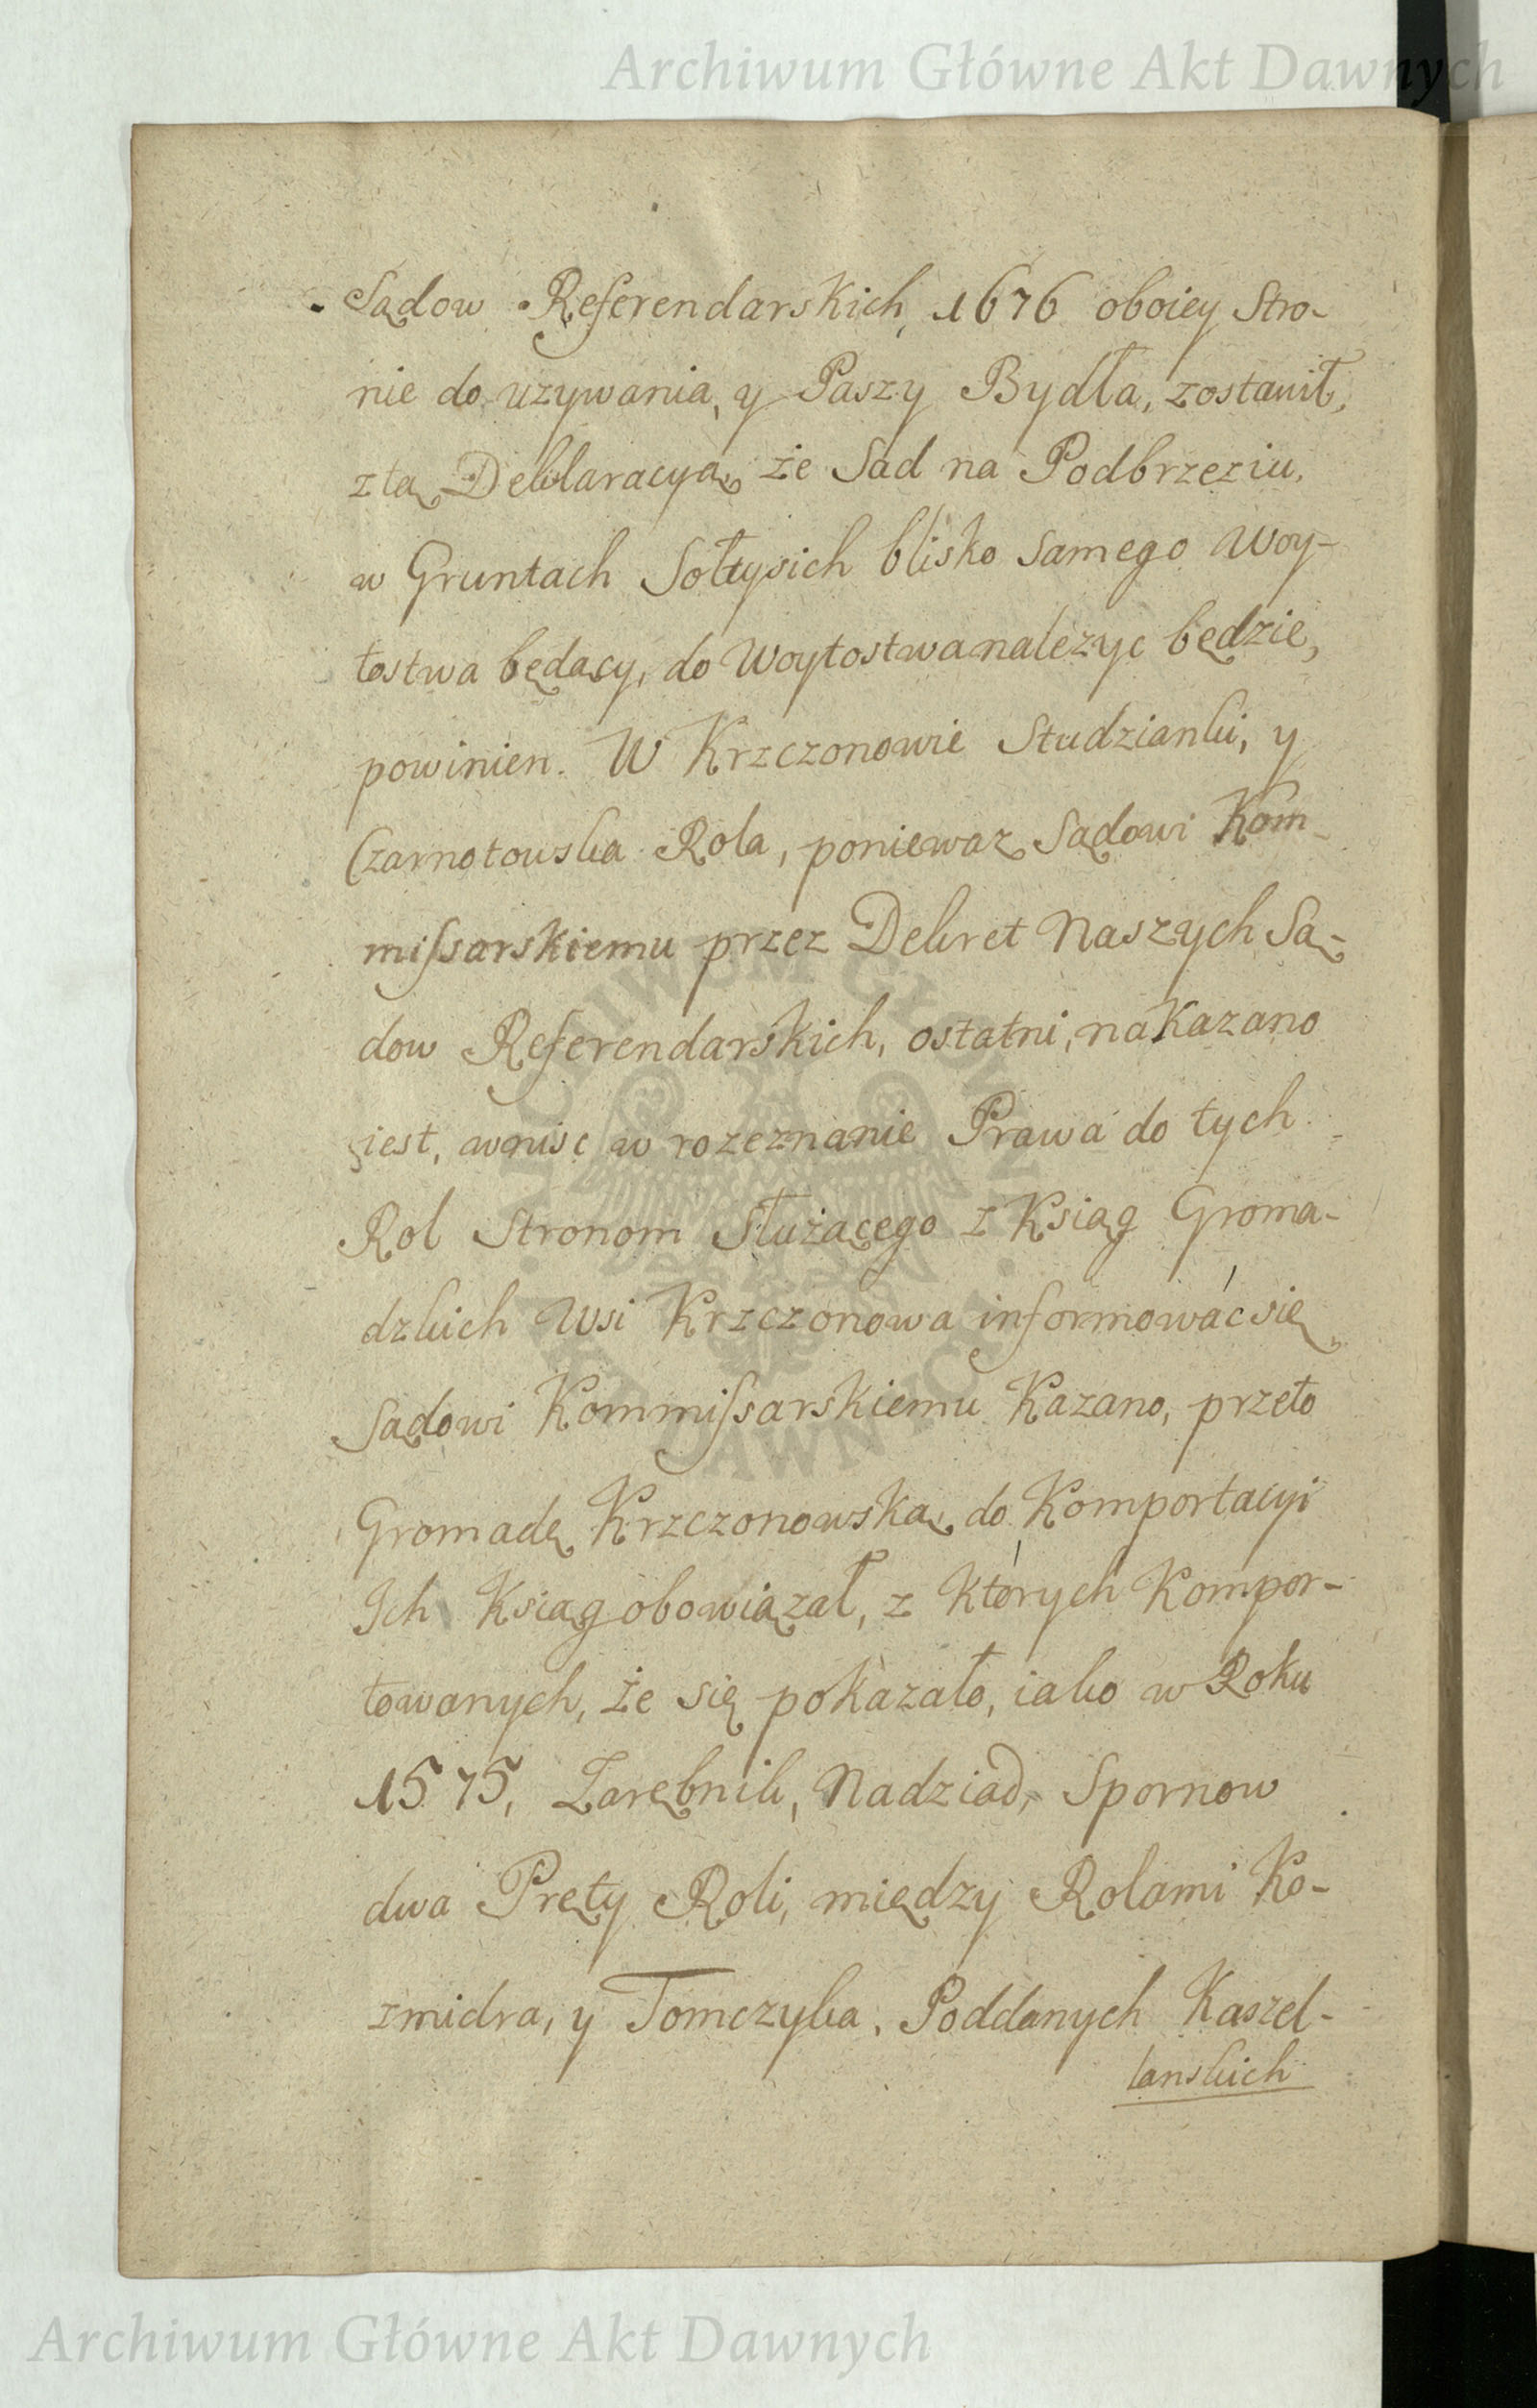 Archiwum Główne Akt Dawnych
Sądow Referendarskich, 1676 oboiey Stro-
nie do uzywania, y Paszy Bydła, zostawił,
z tą Deklaracyą, że Sad na Podbrzeziu,
w Gruntach Sołtysich blisko Samego Woy-
tostwa będący, do Woytostwa nalezyc będzie,
powinien. W Krzczonowie Studzianki, y
Czarnotowska Rola, poniewaz Sądowi Kom-
missarskiemu przez Dekret Naszych Są-
dow Referendarskich, ostatni, nakazano
iest, wnisc w rozeznanie Prawa do tych
Rol Stronom Służącego z Ksiąg Groma-
dzkich Wsi Krzczonowa informować się
Sądowi Kommissarskiemu Kazano, przeto
Gromadę Krzczonowską do Komportacyi
Ich Ksiąg obowiązał, z których Kompor-
towanych, że się pokazało, iako w Roku
1575, Zarębnik, Nadziad, Spornow
dwa Pręty Roli, między Rolami Ko-
zmidra, y Tomczyka, Poddanych Kasztel-
lanskich
ARCHIWUM GŁÓWNE AKT DAWNYCH
Archiwum Główne Akt Dawnych